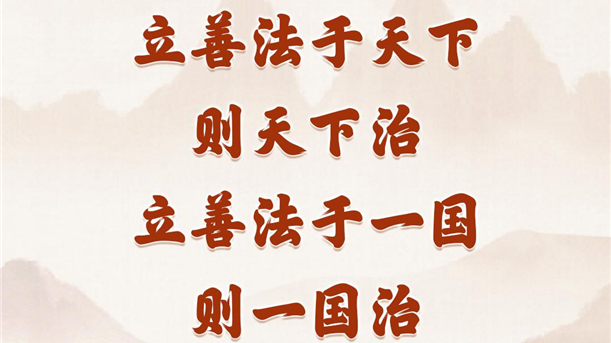 立善法于天下
则天下治
立善法于一国
则一国治